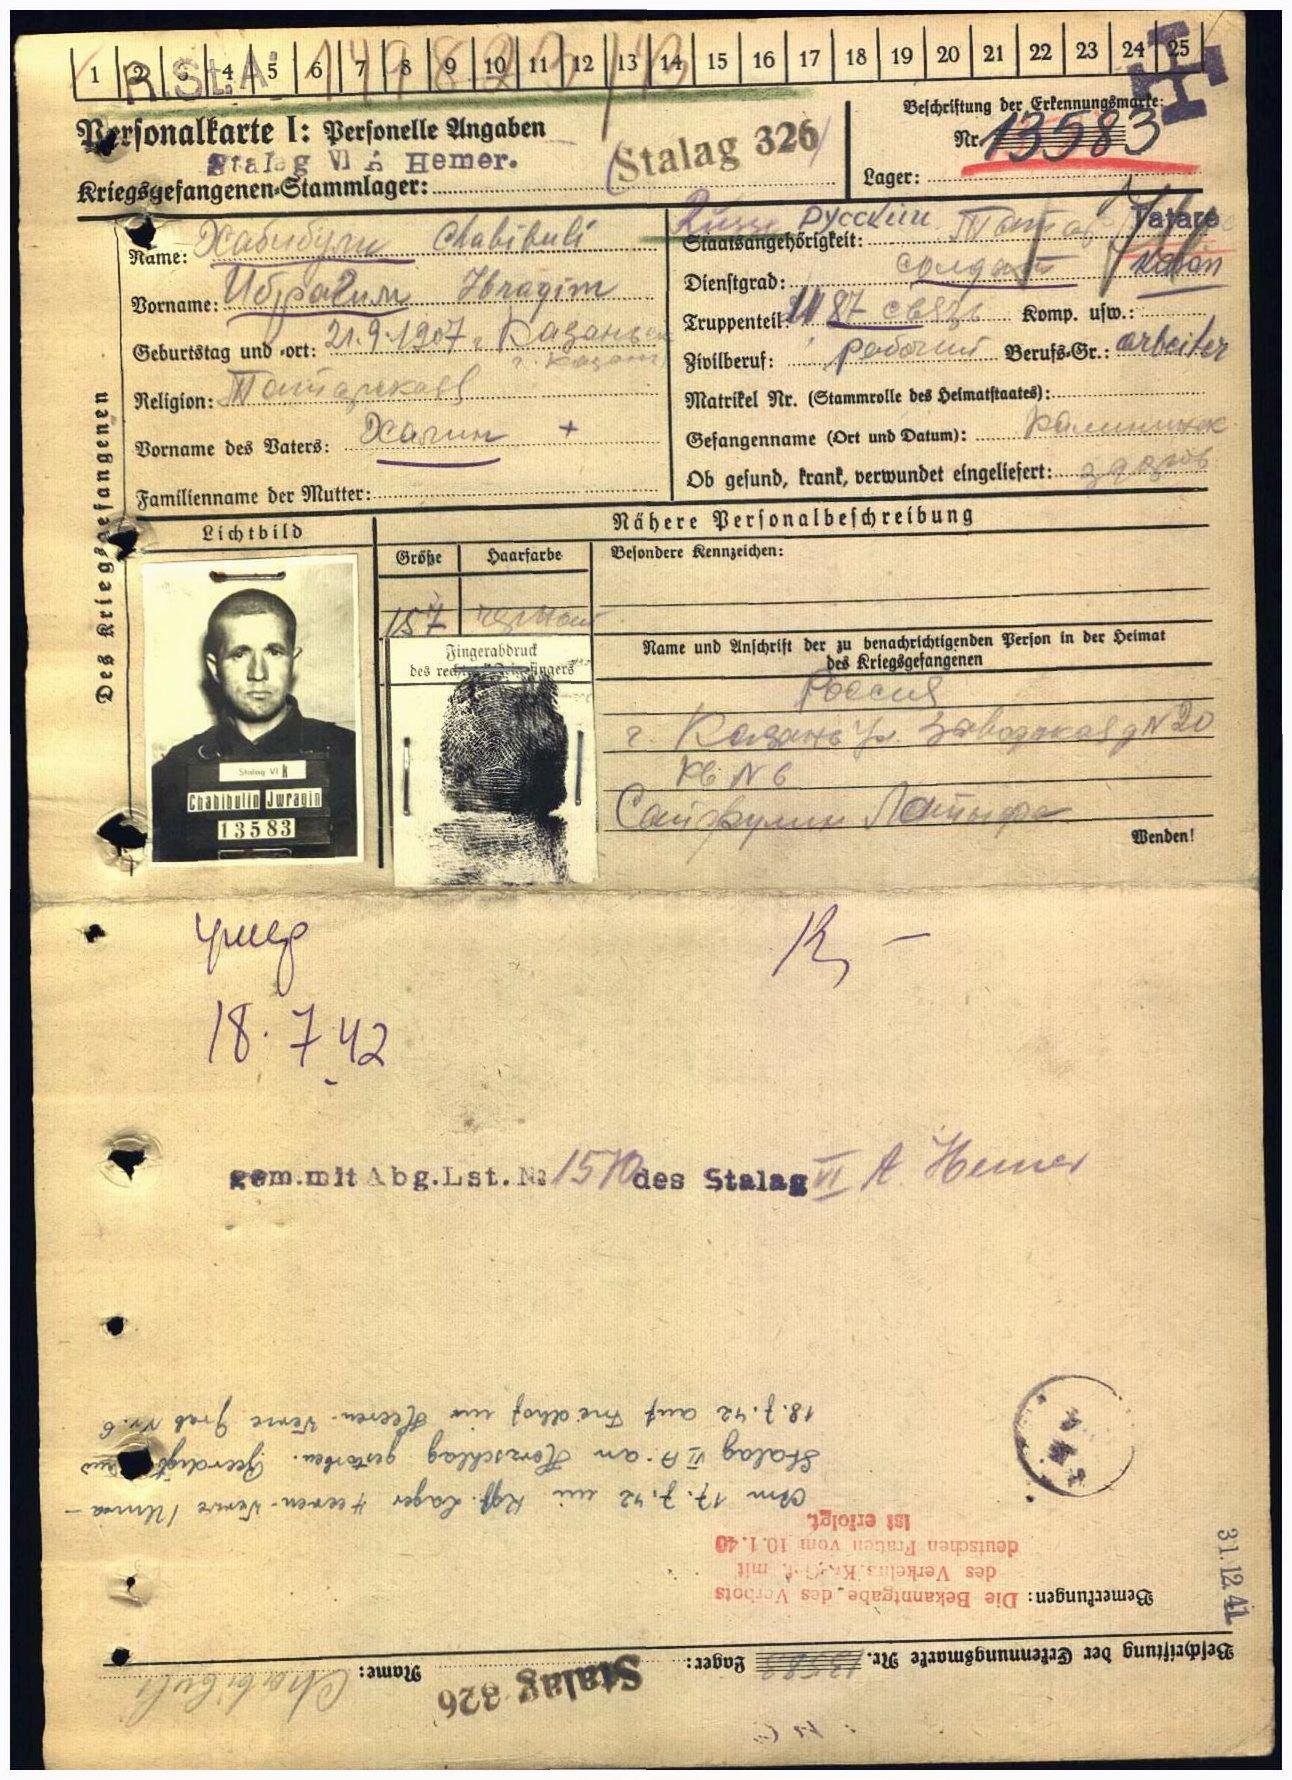 1 2 3 4 5 6 7 8 9 10 11 12 13 14 15 16 17 18 19 20 21 22 23 24 25
R St.A.
Personalkarte I: Personelle Angaben
Stalag VI A Hemer.
Kriegsgefangenen-Stammlager:
Stalag 326
Beschriftung der Erkennungsmarke:
Nr. 13583
Lager:
Des Kriegsgefangenen
Name: Хабибули Chabibuli
Vorname: Ибрагим Ibragim
Geburtstag und -ort: 21.9.1907 г. Казань
г. Казань
Religion: Татарская
Vorname des Vaters: +
Familienname der Mutter:
Русский Татар Tatare
Staatsangehörigkeit:
Dienstgrad: солдат
Truppenteil: 87 связь Komp. usw.:
Zivilberuf: рабочий Berufs-Gr.: arbeiter
Matrikel Nr. (Stammrolle des Heimatstaates):
Gefangenname (Ort und Datum):
Ob gesund, krank, verwundet eingeliefert: здоров
Lichtbild
Nähere Personalbeschreibung
Größe Haarfarbe Besondere Kennzeichen:
157 черный
Stalag VI K
Chabibulin Jwragin
13583
Fingerabdruck
des rechten Zeigefingers
Name und Anschrift der zu benachrichtigenden Person in der Heimat
des Kriegsgefangenen
Россия
г. Казань ул. Заводская д N 20
кв N 6
Сайфулин Латыфа
Wenden!
умер
18.7.42
gem. mit Abg. Lst. № 1570 des Stalag VI A. Hemer
31.12.41
Beschriftung der Erkennungsmarke Nr. 13583 Lager: Stalag 326 Name: Chabibuli
Bemerkungen: Die Bekanntgabe des Verbots
des Verkehrs Kr. Gef. mit
deutschen Frauen vom 10.1.40
ist erfolgt.
Am 17.7.42 im Kgf. Lager Heeren-Werve / Unna -
Stalag VI A. an Herzschlag gestorben. Beerdigt
18.7.42 auf Friedhof in Heeren-Werve Grab Nr. 6